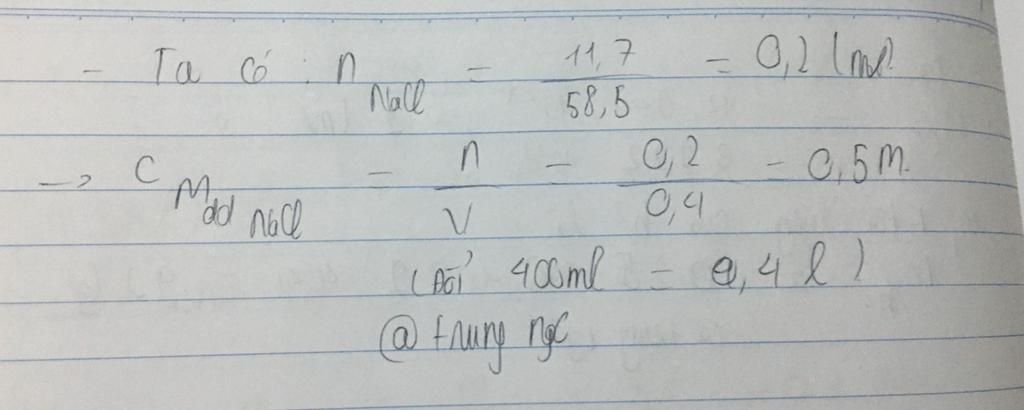 - Ta có : n NaCl = 11,7 / 58,5 = 0,2 (mol)
→ C M dd NaCl = n / V = 0,2 / 0,4 = 0,5M.
(Đổi 400ml = 0,4 l)
@ trung ngc